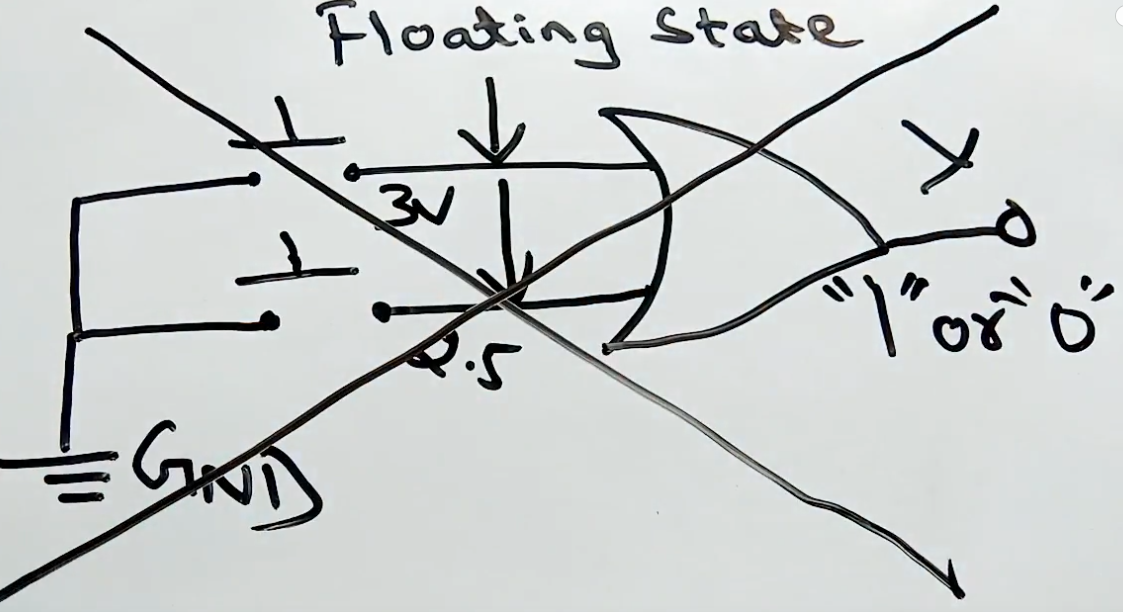 Floating State
3V
Y
2.5
"1" or "0"
GND